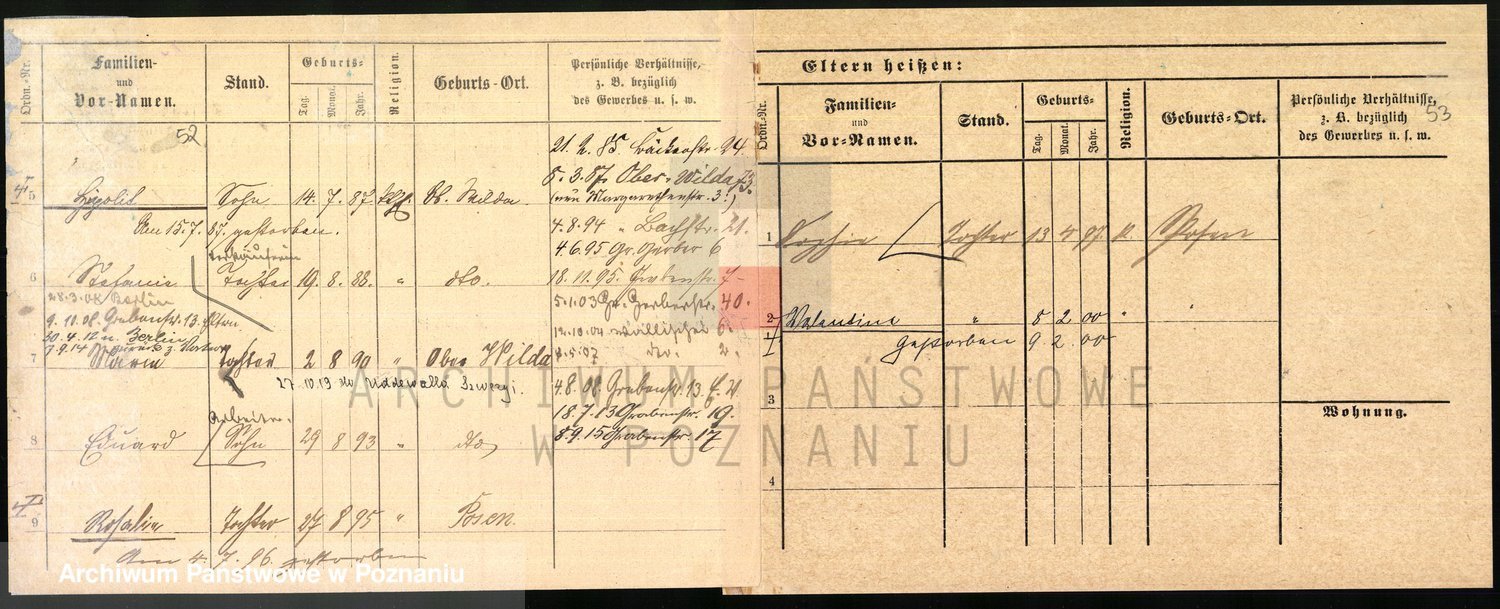 Ordn.-Nr.
Familien-
und
Vor-Namen.
Stand.
Geburts-
Tag.
Monat.
Jahr.
Religion.
Geburts-Ort.
Persönliche Verhältnisse,
z. B. bezüglich
des Gewerbes u. s. w.
52
21.2.85 Bäckerstr. 24.
5.3.87. Ober-Wilda 73.
5 Hypolit Sohn 14. 7. 87. kath. Ob. Wilda. (neu Margarethenstr. 3.)
Am 15.7. 87. gestorben. 4.8.94 " Bachstr. 21.
Verkäuferin 4.6.95 Gr. Gerber 6
6 Stefanie Tochter 19. 8. 88. " dto. 18.11.95. Grabenstr. 7
28.3.08 Berlin 5.1.03 Gr. Gerberstr. 40.
9.11.08. Grabenstr. 13. 12.10.04 Wallischei 6.
30.4.12 n. Berlin 8.5.07 do. 2.
7.9.14 z. Vater
7 Marie Tochter 2 8 90 " Ober Wilda
27.10.19 do Uddewalla Szwecji. 4.8.08. Grabenstr. 13
Arbeiter. 18.7.13 Grabenstr. 19.
8 Eduard Sohn 29 8 93 " dto 8.9.15 Grabenstr. 17
9 Rosalie Tochter 27 8 95 " Posen.
Am 4. 7. 96. gestorben
Archiwum Państwowe w Poznaniu
Eltern heißen:
Ordn.-Nr.
Familien-
und
Vor-Namen.
Stand.
Geburts-
Tag.
Monat.
Jahr.
Religion.
Geburts-Ort.
Persönliche Verhältnisse,
z. B. bezüglich
des Gewerbes u. s. w.
53
1 Sophie Tochter 13 4 97 k. Posen
2 Valentine " 5 2 00 " "
Gestorben 9 2 00
3
Wohnung.
4
ARCHIWUM PAŃSTWOWE
W POZNANIU